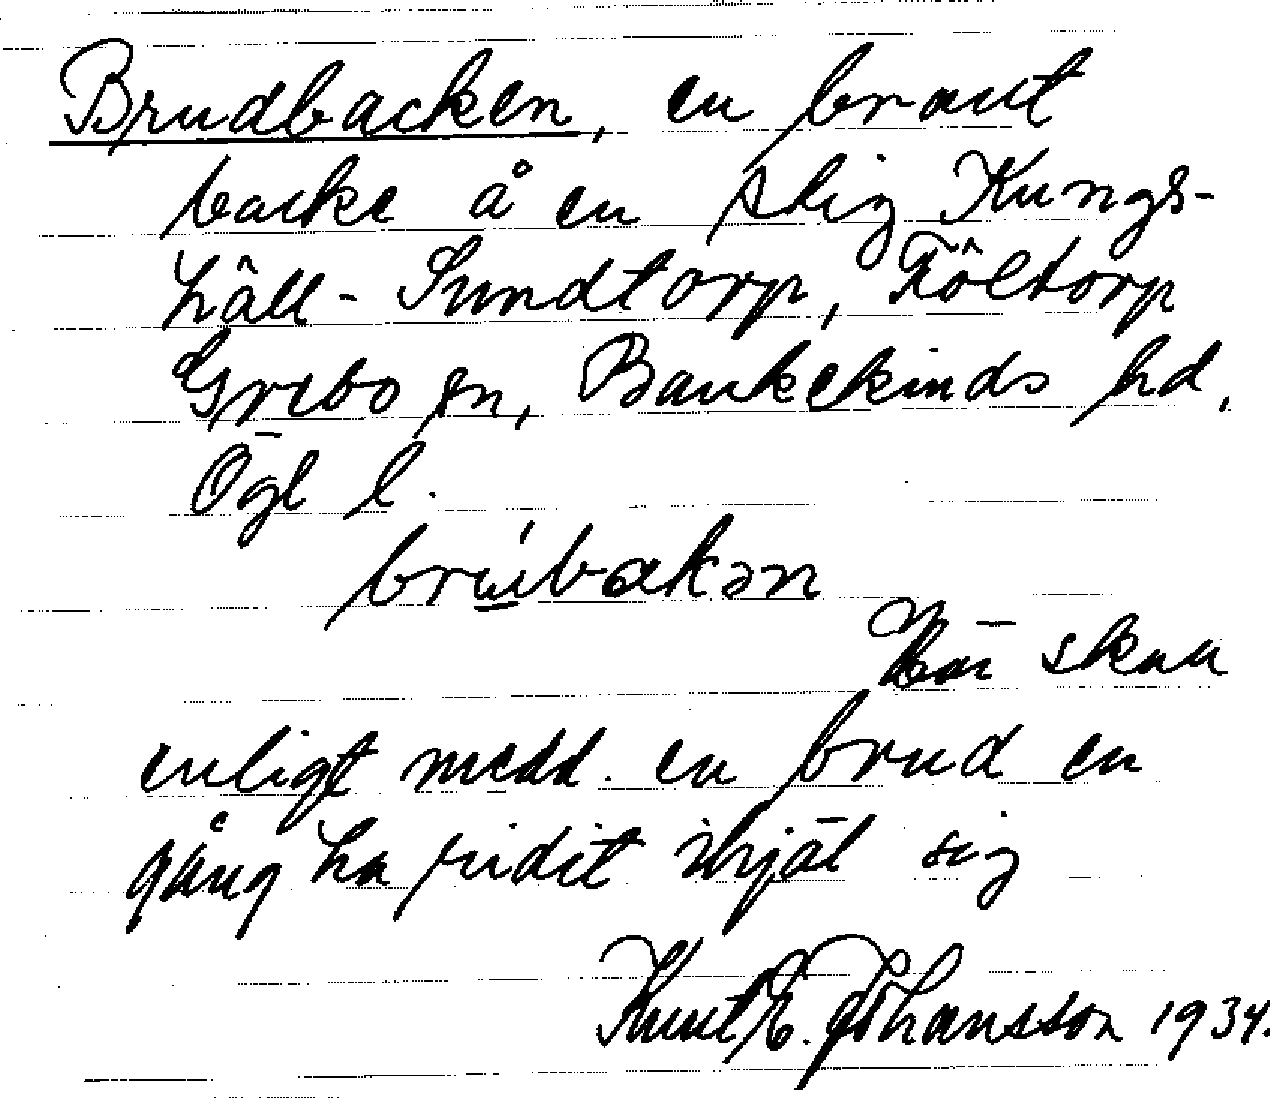 Brudbacken, en brant
backe å en stig Kungs-
häll - Sundtorp, Föltorp
Grebo sn, Bankekinds hd,
Ögl l.
brúbakən
Här skall
enligt medd. en brud en
gång ha ridit ihjäl sig
Knut E. Johansson 1934.